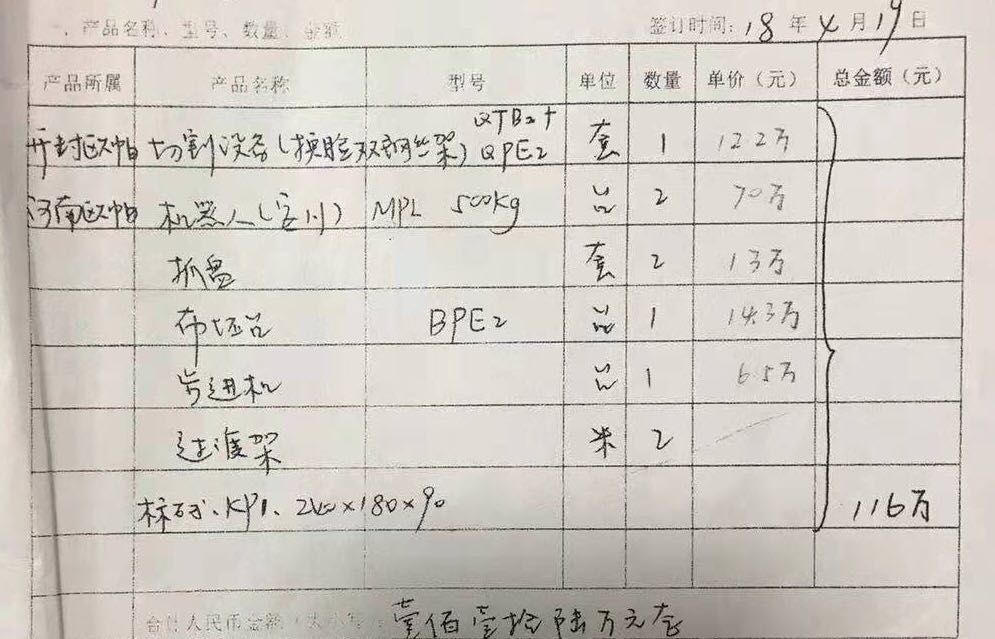 一、产品名称、型号、数量、金额
签订时间: 18 年 4 月 19 日
产品所属 产品名称 型号 单位 数量 单价（元） 总金额（元）
开封欧帕 切割设备(换脸双钢丝架) QTB2+ QPE2 套 1 12.2万
河南欧帕 机器人(安川) MPL 500Kg 台 2 70万
抓盘 套 2 13万
布坯台 BPE2 台 1 14.3万
步进机 台 1 6.5万
过渡架 米 2
标砖、KP1、240×180×90 116万
合计人民币金额 壹佰壹拾陆万元整